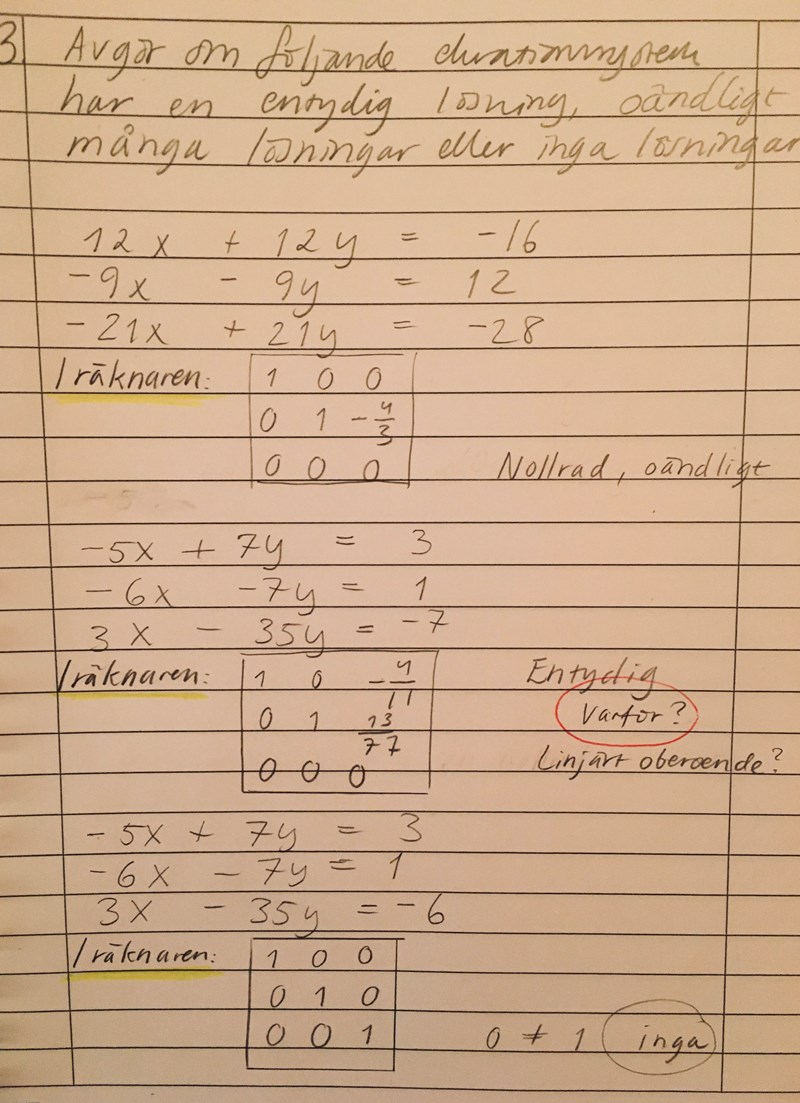 3 Avgör om följande ekvationssystem
har en entydig lösning, oändligt
många lösningar eller inga lösningar
12x + 12y = -16
-9x - 9y = 12
-21x + 21y = -28
I räknaren: 1 0 0
0 1 -4/3
0 0 0 Nollrad, oändligt
-5x + 7y = 3
-6x -7y = 1
3x - 35y = -7
I räknaren: 1 0 -4/11 Entydig
0 1 13/77 Varför?
0 0 0 Linjärt oberoende?
-5x + 7y = 3
-6x - 7y = 1
3x - 35y = -6
I räknaren: 1 0 0
0 1 0
0 0 1 0 ≠ 1 inga